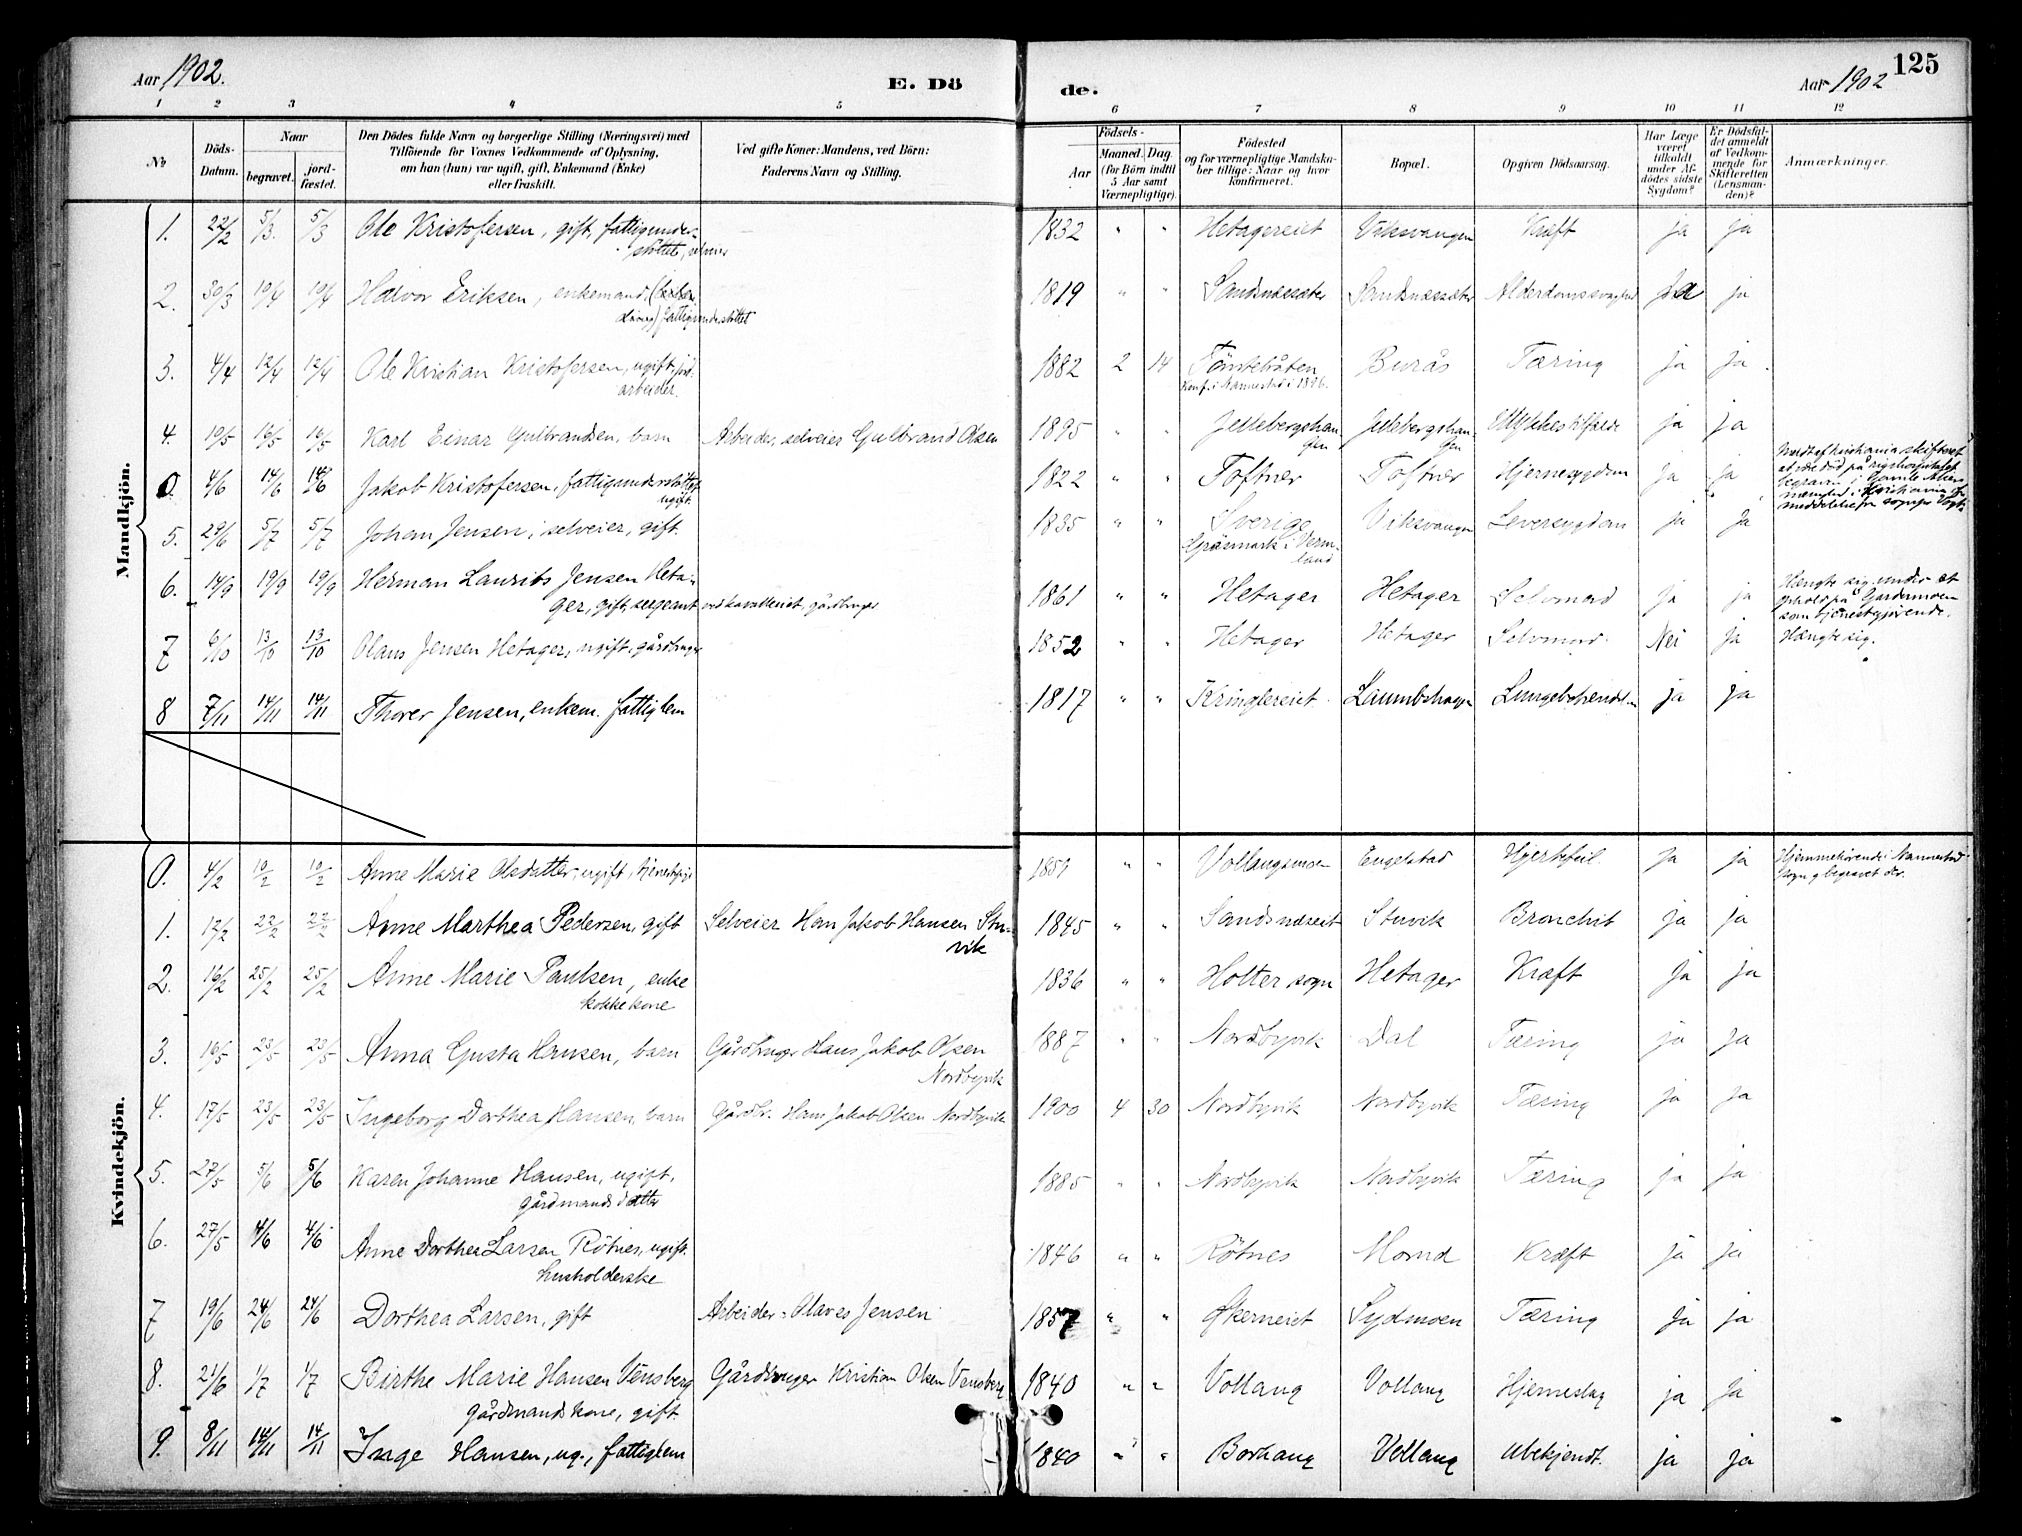 Aar 1902.
E. Dö
de.
Aar 1902
125
1 2 3 4 5 6 7 8 9 10 11 12
No
Döds-Datum.
Naar
begravet.
jord-fæstet.
Den Dödes fulde Navn og borgerlige Stilling (Næringsvei) med
Tilföiende for Voxnes Vedkommende af Oplysning,
om han (hun) var ugift, gift, Enkemand (Enke)
eller fraskilt.
Ved gifte Koner: Mandens, ved Börn:
Faderens Navn og Stilling.
Födsels-
Aar
Maaned. Dag.
(for Börn indtil
5 Aar samt
Værnepligtige).
Födested
og for værnepligtige Mandska-
ber tillige: Naar og hvor
konfirmeret.
Bopæl.
Opgiven Dödsaarsag.
Har Læge
været
tilkaldt
under Af-
dödes sidste
Sygdom?
Er Dödsfal-
det anmeldt
af Vedkom-
mende for
Skifteretten
(Lensman-
den)?
Anmærkninger.
Mandkjön.
1. 22/2 5/3. 5/3 Ole Kristofersen, gift, fattigunder-
støttet, selveier
1832 " " Hetagereiet Viksvangen Kræft ja ja
2. 30/3 10/4 10/4 Halvor Eriksen, enkemand,
fattigunderstøttet
1819 " " Sandsnæssæter Sandsnæssæter Alderdomssvaghed Ja ja
3. 4/4 12/4 12/4 Ole Kristian Kristofersen, ugift, jord-
arbeider.
1882 2 14 Tömtebåten Burås Tæring ja ja
Konf. i Nannestad i 1896.
4. 10/5 16/5 16/5 Karl Einar Gulbrandsen, barn Arbeider, selveier Gulbrand Olsen 1895 " " Jellebergshaugen Jellebergshaugen Ulykkestilfælde ja ja
0. 4/6 14/6 14/6 Jakob Kristofersen, fattigunderstöttet
ugift.
1822 " " Toftner Toftner Hjernesygdom ja ja
5. 29/6 5/7 5/7 Johan Jensen, selveier, gift. 1835 " " Sverige Viksvangen Leversygdom ja ja
Gräsmark i Verm-
land
6. 14/9 19/9 19/9 Herman Laurits Jensen Heta-
ger, gift, sergeant ved kavalleriet, gårdbruger
1861 " " Hetager Hetager Selvmord ja ja Hængte sig under et
ophold på Gardermoen
som tjenestgjørende.
7 6/10 13/10 13/10 Olaus Jensen Hetager, ugift, gårdbruger 1852 " " Hetager Hetager Selvmord. Nei ja Hængte sig.
8 7/11 14/11 14/11 Thorer Jensen, enkem. fattiglem 1817 " " Kringlereiet ja ja
Kvindekjön.
0. 4/2 10/2 10/2 Anne Marie Olsdatter, ugift, tjenestpige " " Vollaugsmoen Engelstad Hjertefeil. Ja ja Hjemmehörende i Nannestad
sogn og begravet der.
1. 12/2 22/2 22/2 Anne Marthea Pedersen, gift Selveier Hans Jakob Hansen Stu-
vik
1845 " " Sandsnæseiet Stuvik Bronchit ja ja
2. 16/2 25/2 25/2 Anne Marie Paulsen, enke
kokkekone
1836 " " Holter sogn Hetager Kræft ja ja
3. 16/5 23/5 23/5 Anna Gusta Hansen, barn Gårdbruger Hans Jakob Olsen
Nordbyvik
1887 " " Nordbyvik Dal Tæring ja ja
4. 17/5 23/5 23/5 Ingeborg Dorthea Hansen, barn Gårdbr. Hans Jakob Olsen Nordbyvik 1900 4 30 Nordbyvik Nordbyvik Tæring ja ja
5. 27/5 5/6 5/6 Karen Johanne Hansen, ugift,
gårdmandsdatter
1885 " " Nordbyvik Nordbyvik Tæring ja ja
6. 27/5 4/6 4/6 Anne Dorthea Larsen Rötnes, ugift.
husholderske
1846 " " Rötnes Kræft ja ja
7 19/6 24/6 24/6 Dorthea Larsen, gift Arbeider Olaves Jensen 1857 " " Økerneiet Sydmoen Tæring ja ja
8. 21/6 1/7 1/7 Birthe Marie Hansen Vensberg Gårdbruger Kristian Olsen Vensberg
gårdmandskone, gift.
1840 " " Vollaug Vollaug Hjerneslag ja ja
9. 8/11 14/11 14/11 Inge Hansen, ug., fattiglem 1840 " " Borhaug Vollaug Ubekjendt. ja ja